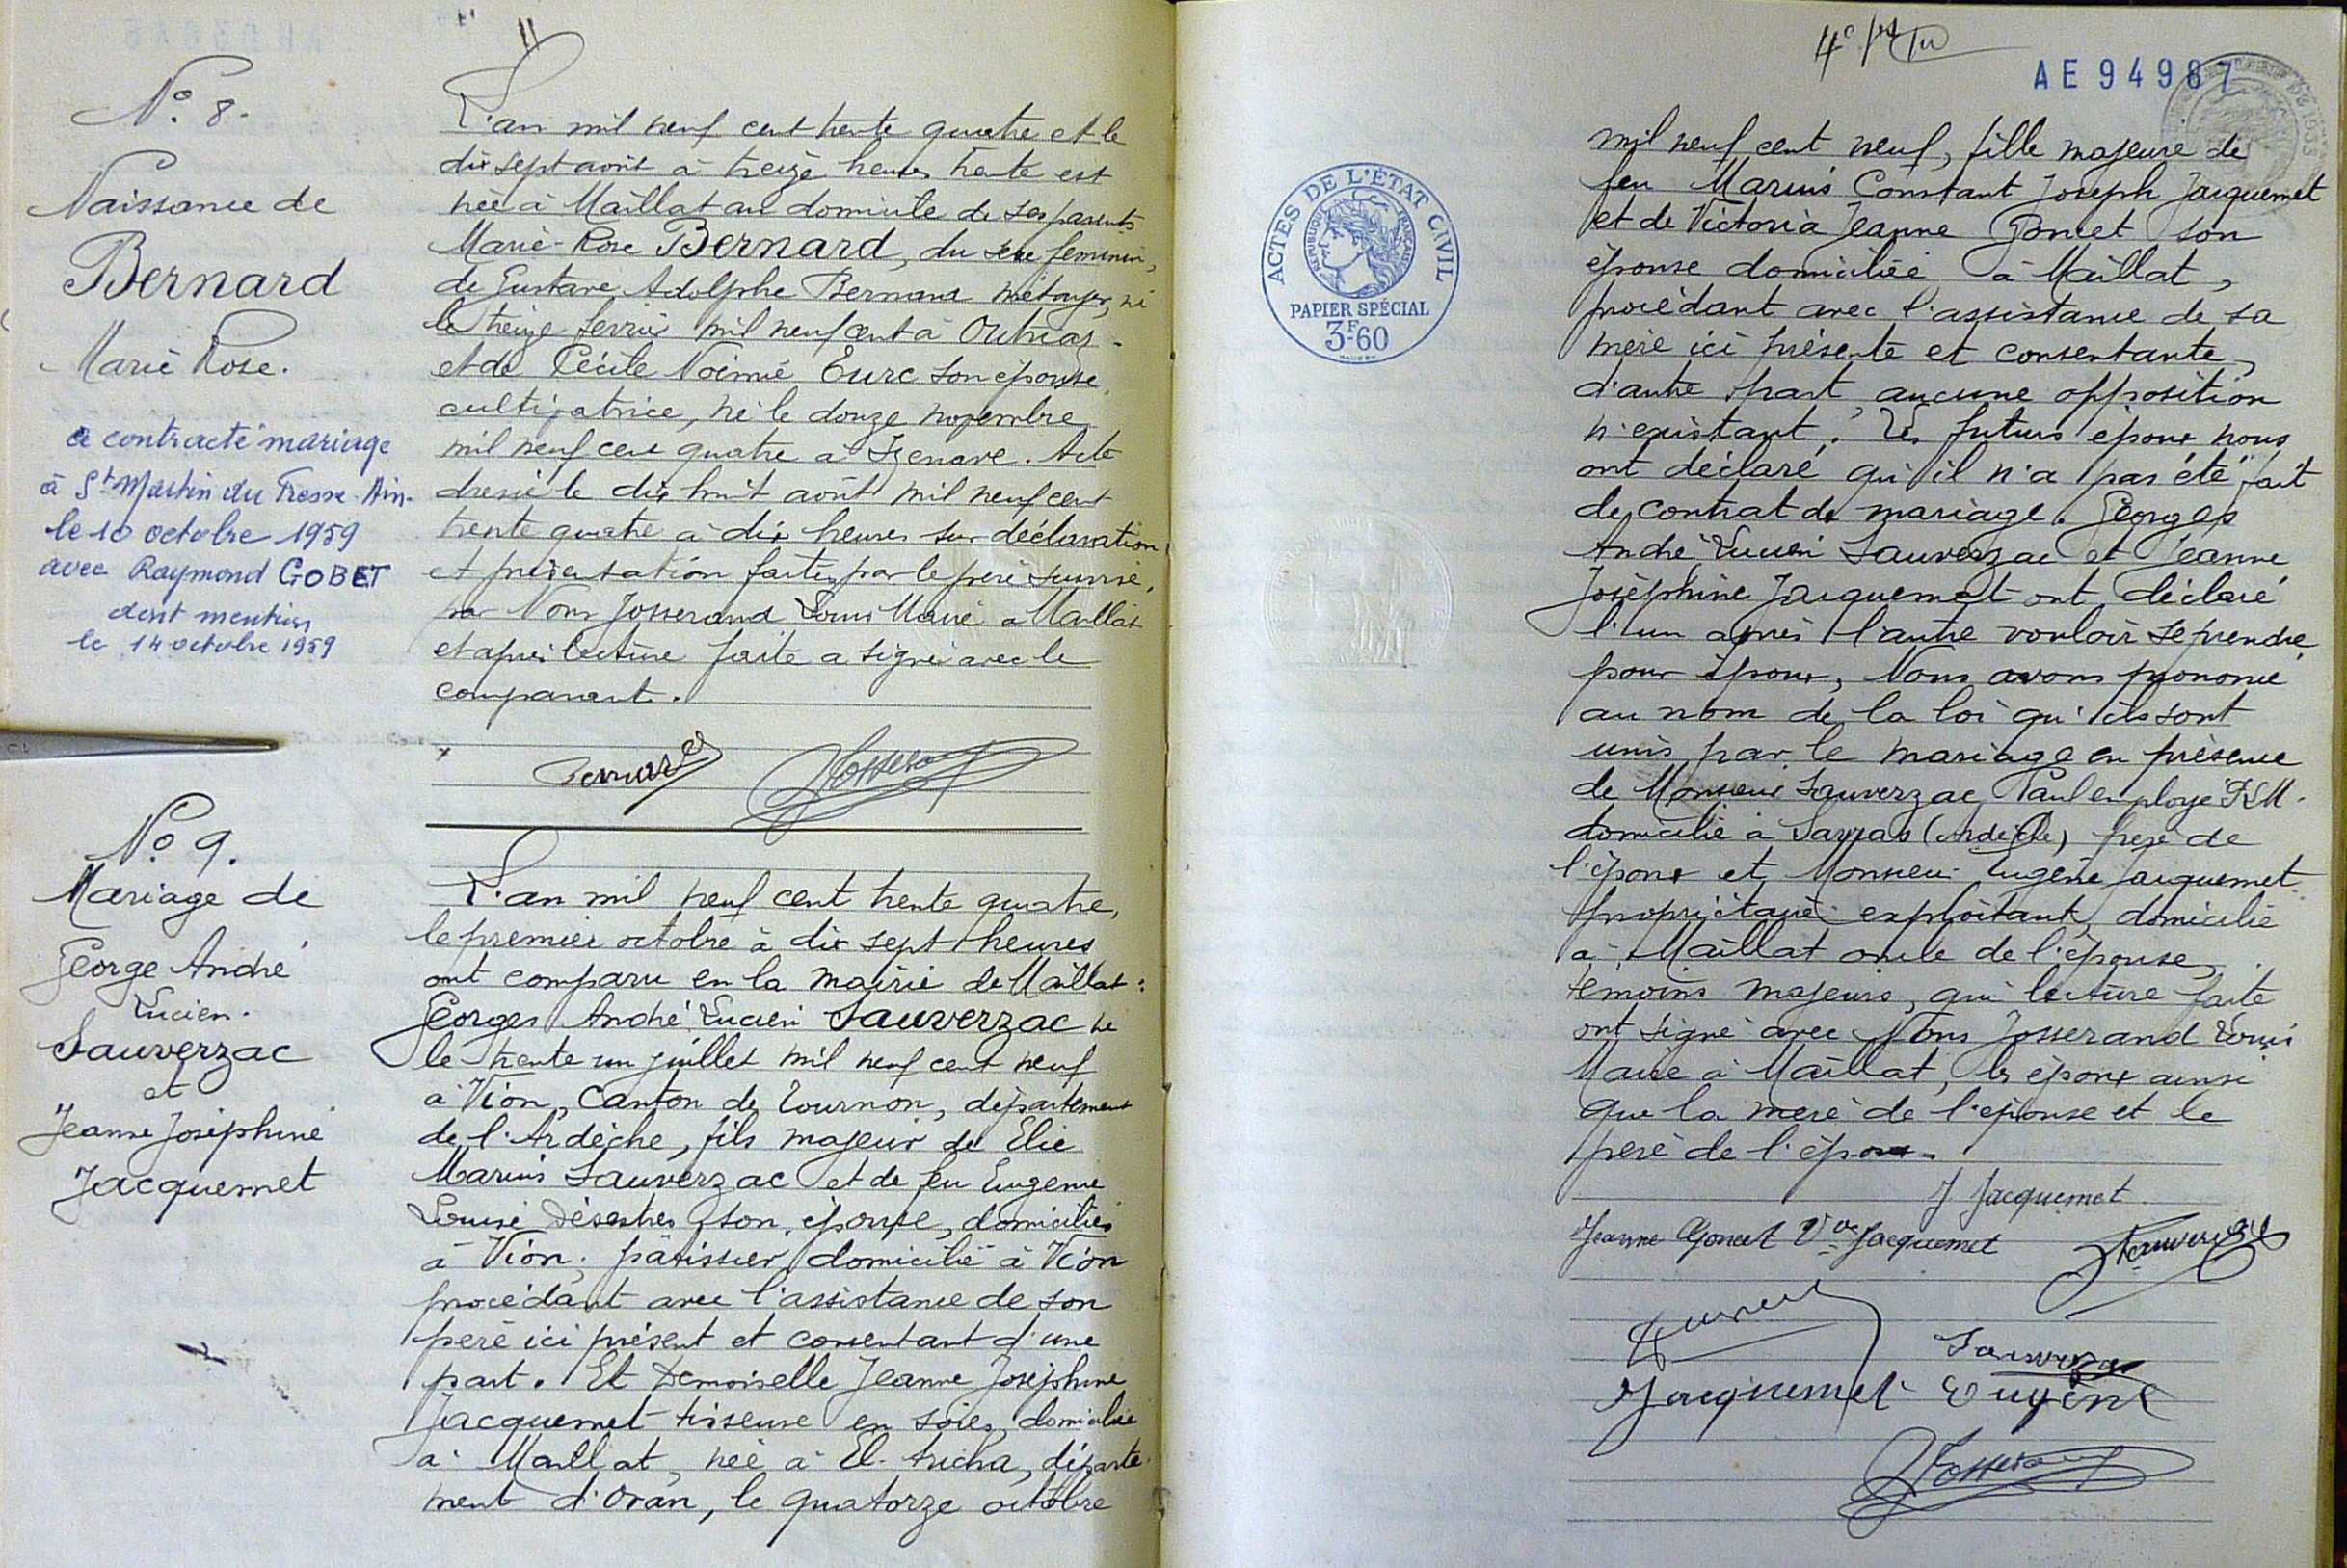 N° 8.
Naissance de
Bernard
Marie Rose.
a contracté mariage
à St Martin du Fresne - Ain.
le 10 octobre 1959
avec Raymond GOBET
dont mention
le 14 octobre 1959
L'an mil neuf cent trente quatre et le
dix sept août à treize heures trente est
née à Maillat au domicile de ses parents
Marie-Rose Bernard, du sexe féminin,
de Gustave Adolphe Bernard métayer, né
le treize février mil neuf cent à Outriaz
et de Cécile Noémie Eurc son épouse
cultivatrice, né le douze novembre
mil neuf cent quatre à Izenave. Acte
dressé le dix huit août mil neuf cent
trente quatre à dix heures sur déclaration
et présentation faites par le père susnommé,
par Nous Josserand Louis Maire à Maillat
et après lecture faite a signé avec le
comparant.
Bernard Josserand
N° 9.
Mariage de
George André
Lucien.
Sauverzac
et
Jeanne Joséphine
Jacquemet
L'an mil neuf cent trente quatre,
le premier octobre à dix sept heures
ont comparu en la mairie de Maillat :
Georges André Lucien Sauverzac né
le trente un juillet mil neuf cent neuf
à Vion, Canton de Tournon, département
de l'Ardèche, fils majeur de Elie
Marius Sauverzac et de feu Eugenie
Louise Désestres son épouse, domiciliés
à Vion, pâtissier, domicilié à Vion
procédant avec l'assistance de son
père ici présent et consentant d'une
part. Et Demoiselle Jeanne Joséphine
Jacquemet tisseuse en soies, domiciliée
à Maillat, née à El-Aricha, départe-
ment d'Oran, le quatorze octobre
4e
AE 94987
ACTES DE L'ÉTAT CIVIL
RÉPUBLIQUE FRANÇAISE
PAPIER SPÉCIAL
3F60
mil neuf cent neuf, fille majeure de
feu Marius Constant Joseph Jacquemet
et de Victoria Jeanne Goncet son
épouse domiciliée à Maillat,
procédant avec l'assistance de sa
mère ici présente et consentante,
d'autre part, aucune opposition
n'existant. Les futurs époux nous
ont déclaré qu'il n'a pas été fait
de contrat de mariage. Georges
André Lucien Sauverzac et Jeanne
Joséphine Jacquemet ont déclaré
l'un après l'autre vouloir se prendre
pour époux, Nous avons prononcé
au nom de la loi qu'ils sont
unis par le mariage en présence
de Monsieur Sauverzac Paul employé PLM.
domicilié à Sarras (Ardèche) frère de
l'époux et Monsieur Eugène Jacquemet
propriétaire exploitant, domicilié
à Maillat oncle de l'épouse,
témoins majeurs, qui lecture faite
ont signé avec Nous Josserand Louis
Maire à Maillat, les époux ainsi
que la mère de l'épouse et le
père de l'époux.
J Jacquemet
Jeanne Goncet Vve Jacquemet Sauverzac
Sauverzac
Jacquemet Eugène
Josserand